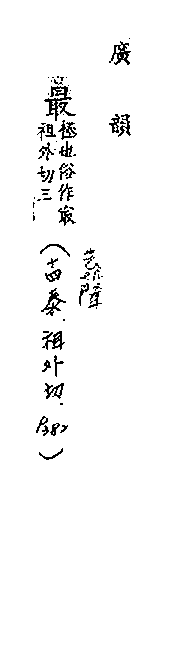 廣韻
最 極也俗作㝡
祖外切三
(十四泰.祖外切.p382)